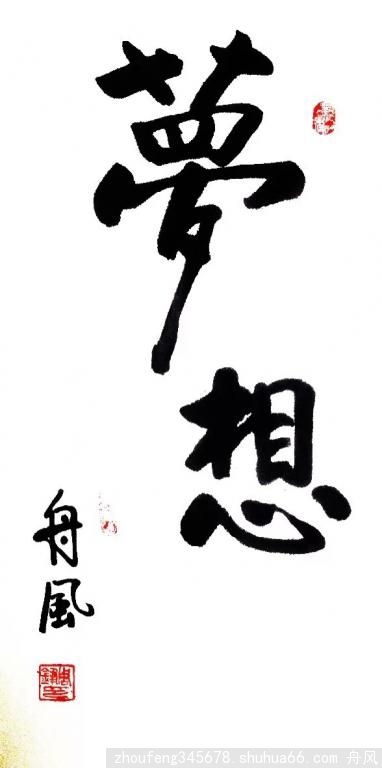 夢想
舟風
zhoufeng345678.shuhua66.com 舟风